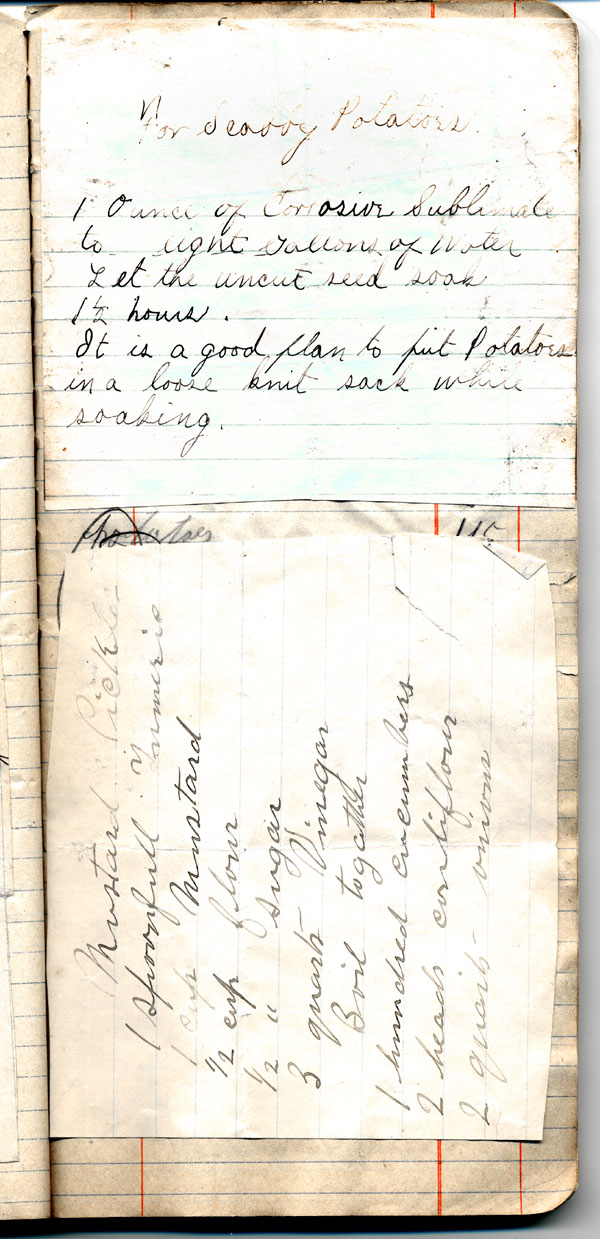 For Scabby Potatoes
1 Ounce of Corrosive Sublimate
to eight Gallons of Water
Let the uncut seed soak
1½ hours.
It is a good plan to put Potatoes
in a loose knit sack while
soaking.
Potatoes 115
Mustard Pickle
1 spoonfull Turmeric
1 cup Mustard
1/2 cup flour
1/2 " sugar
3 quarts Vinegar
Boil togather
1 hundred cucumbers
2 heads coriflour
2 quarts onions